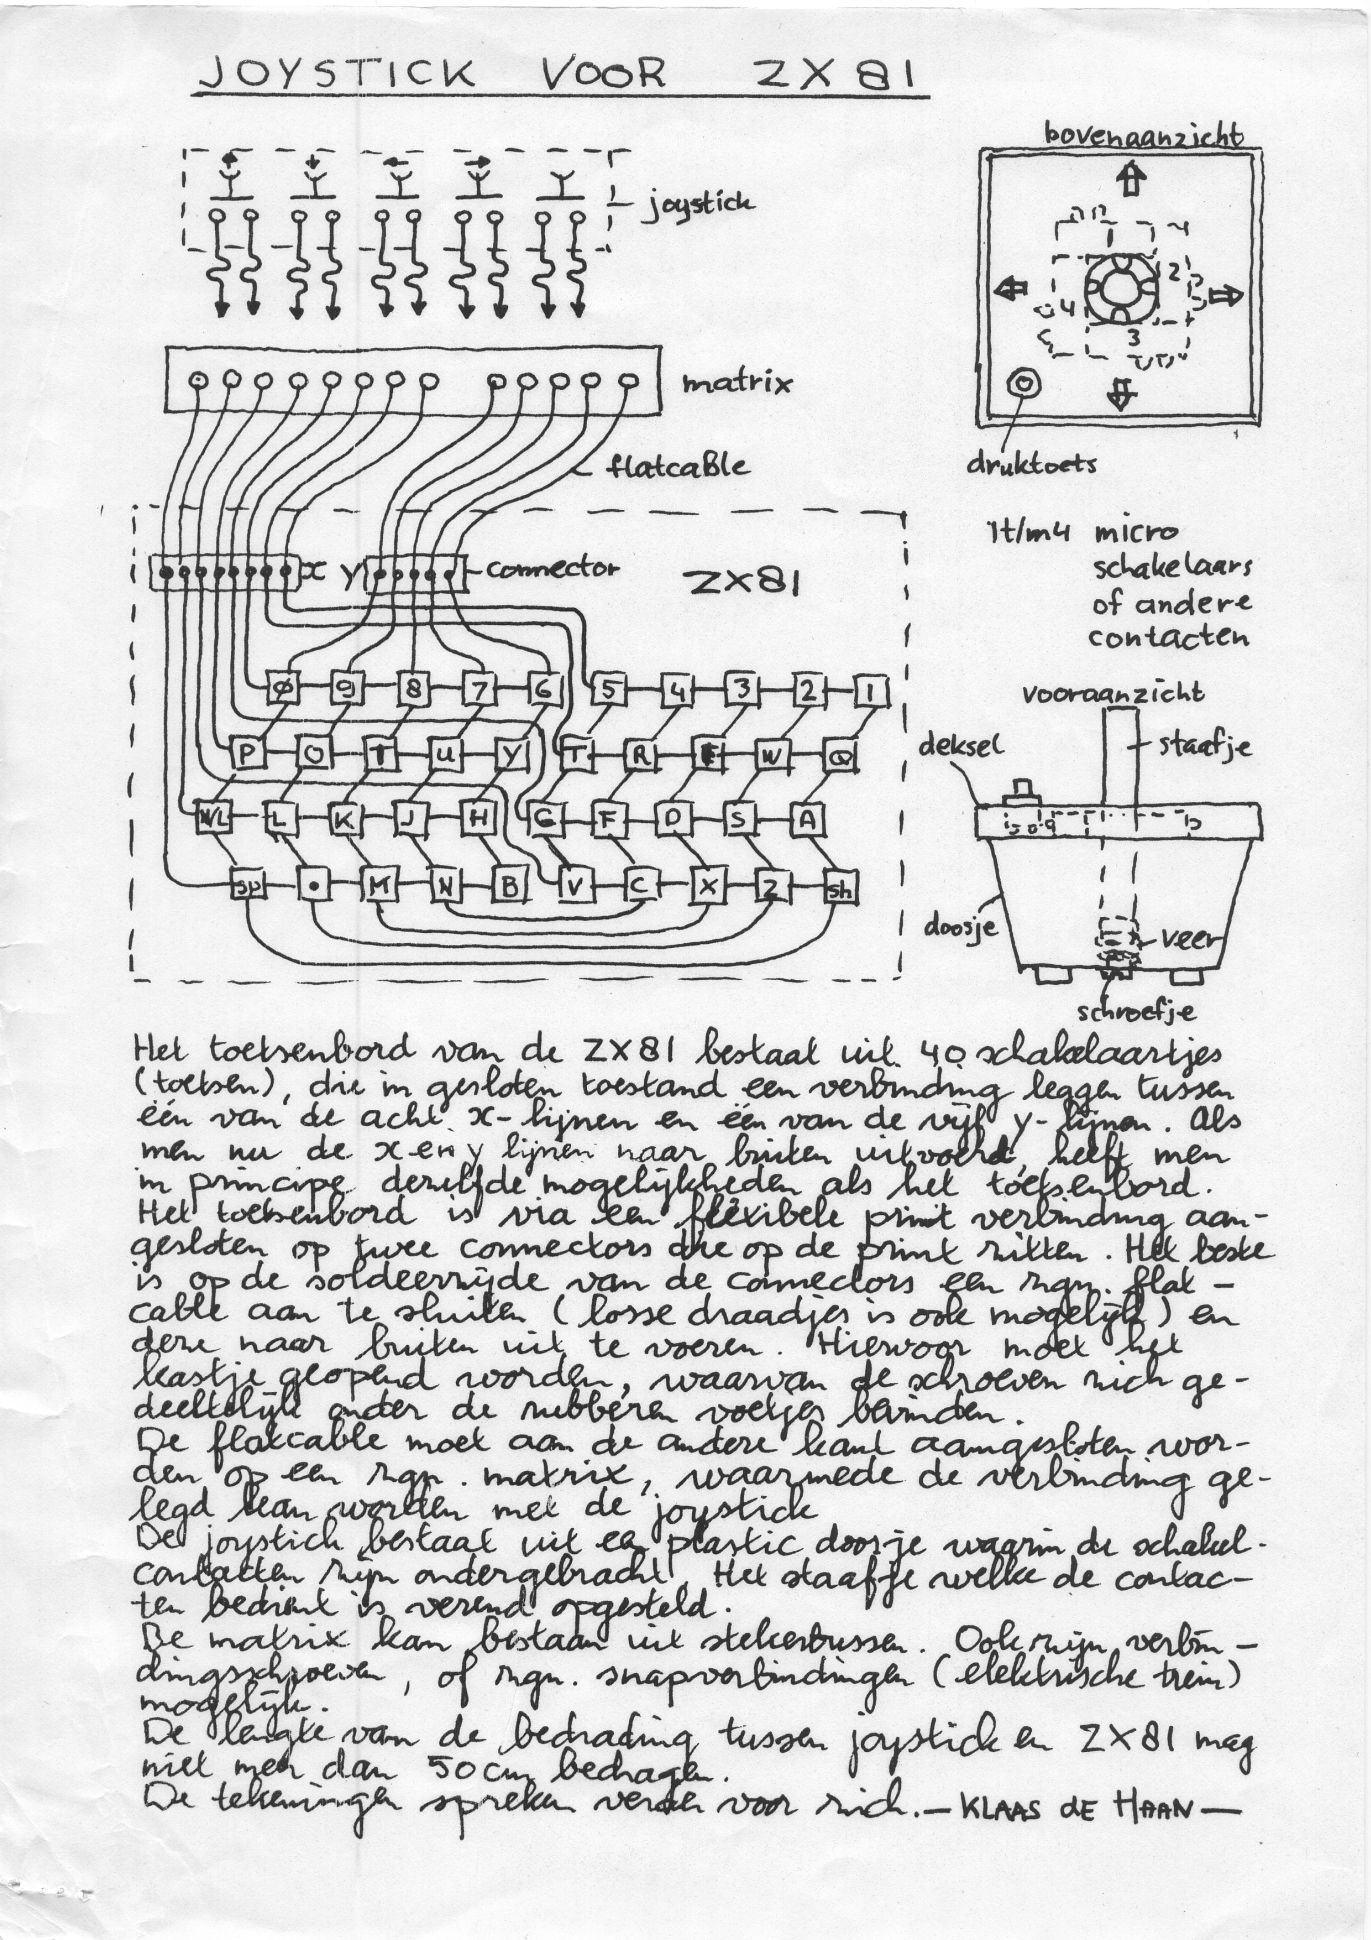 JOYSTICK VOOR ZX81
joystick
matrix
flatcable
x y
connector
ZX81
Ø 9 8 7 6 5 4 3 2 1
P O I U Y T R E W Q
N/L L K J H G F D S A
sp . M N B V C X Z sh
bovenaanzicht
1
2
3
4
druktoets
1t/m4 micro
schakelaars
of andere
contacten
vooraanzicht
deksel
staafje
doosje
veer
schroefje
Het toetsenbord van de ZX81 bestaat uit 40 schakelaartjes
(toetsen), die in gesloten toestand een verbinding leggen tussen
één van de acht x-lijnen en één van de vijf y-lijnen. Als
men nu de x en y lijnen naar buiten uitvoert, heeft men
in principe dezelfde mogelijkheden als het toetsenbord.
Het toetsenbord is via een flexibele print verbinding aan-
gesloten op twee connectors die op de print zitten. Het beste
is op de soldeerzijde van de connectors een zgn. flat-
cable aan te sluiten (losse draadjes is ook mogelijk) en
deze naar buiten uit te voeren. Hiervoor moet het
kastje geopend worden, waarvan de schroeven zich ge-
deeltelijk onder de rubberen voetjes bevinden.
De flatcable moet aan de andere kant aangesloten wor-
den op een zgn. matrix, waarmede de verbinding ge-
legd kan worden met de joystick
De joystick bestaat uit een plastic doosje waarin de schakel-
contacten zijn ondergebracht. Het staafje welke de contac-
ten bedient is verend opgesteld.
De matrix kan bestaan uit stekerbussen. Ook zijn verbin-
dingsschroeven, of zgn. snapverbindingen (elektrische trein)
mogelijk.
De lengte van de bedrading tussen joystick en ZX81 mag
niet meer dan 50cm bedragen.
De tekeningen spreken verder voor zich.—KLAAS de HAAN—